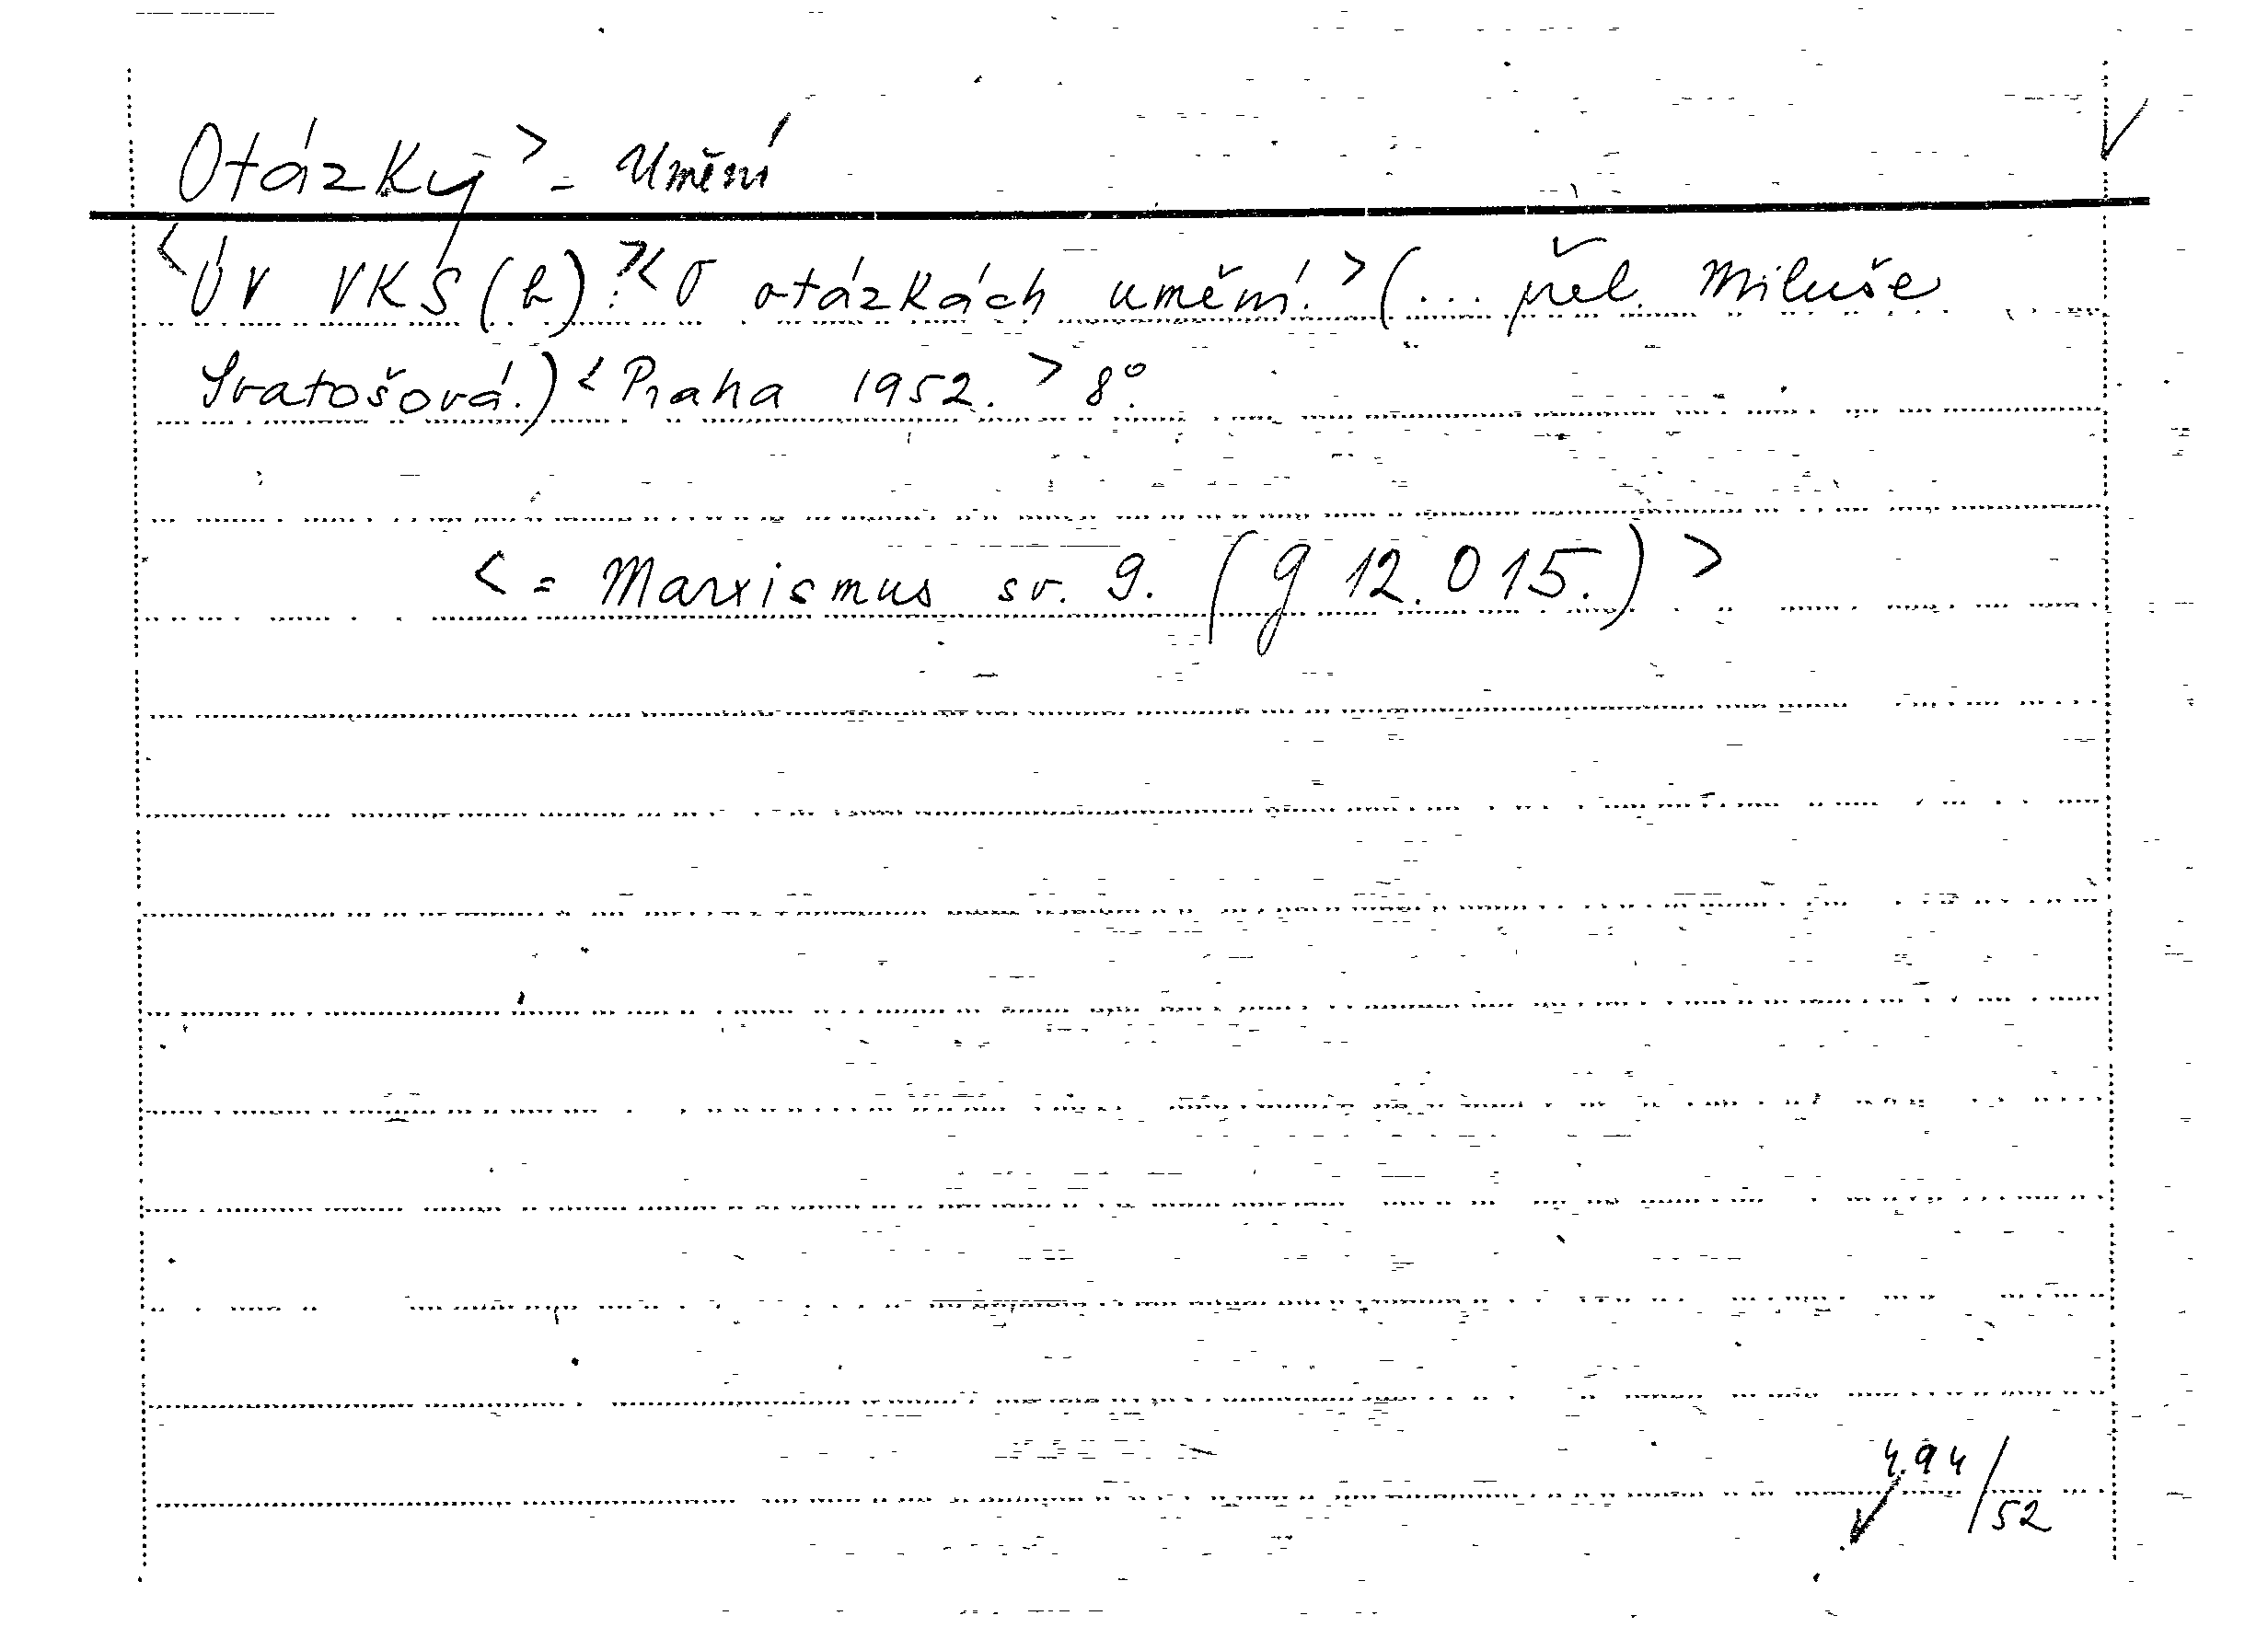 Otázky> - Umění
<ÚV VKS(b):><O otázkách umění.>(... přel. Miluše
Svatošová.)<Praha 1952.> 8°.
<= Marxismus sv. 9. (g 12.015.)>
4.94/52